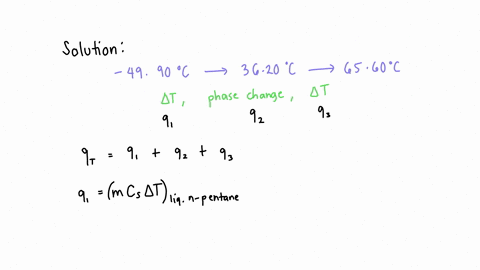 Solution:
-49.90 °C → 36.20 °C → 65.60 °C
ΔT, phase change, ΔT
q₁ q₂ q₃
q_T = q₁ + q₂ + q₃
q₁ = (m Cₛ ΔT) liq. n-pentane